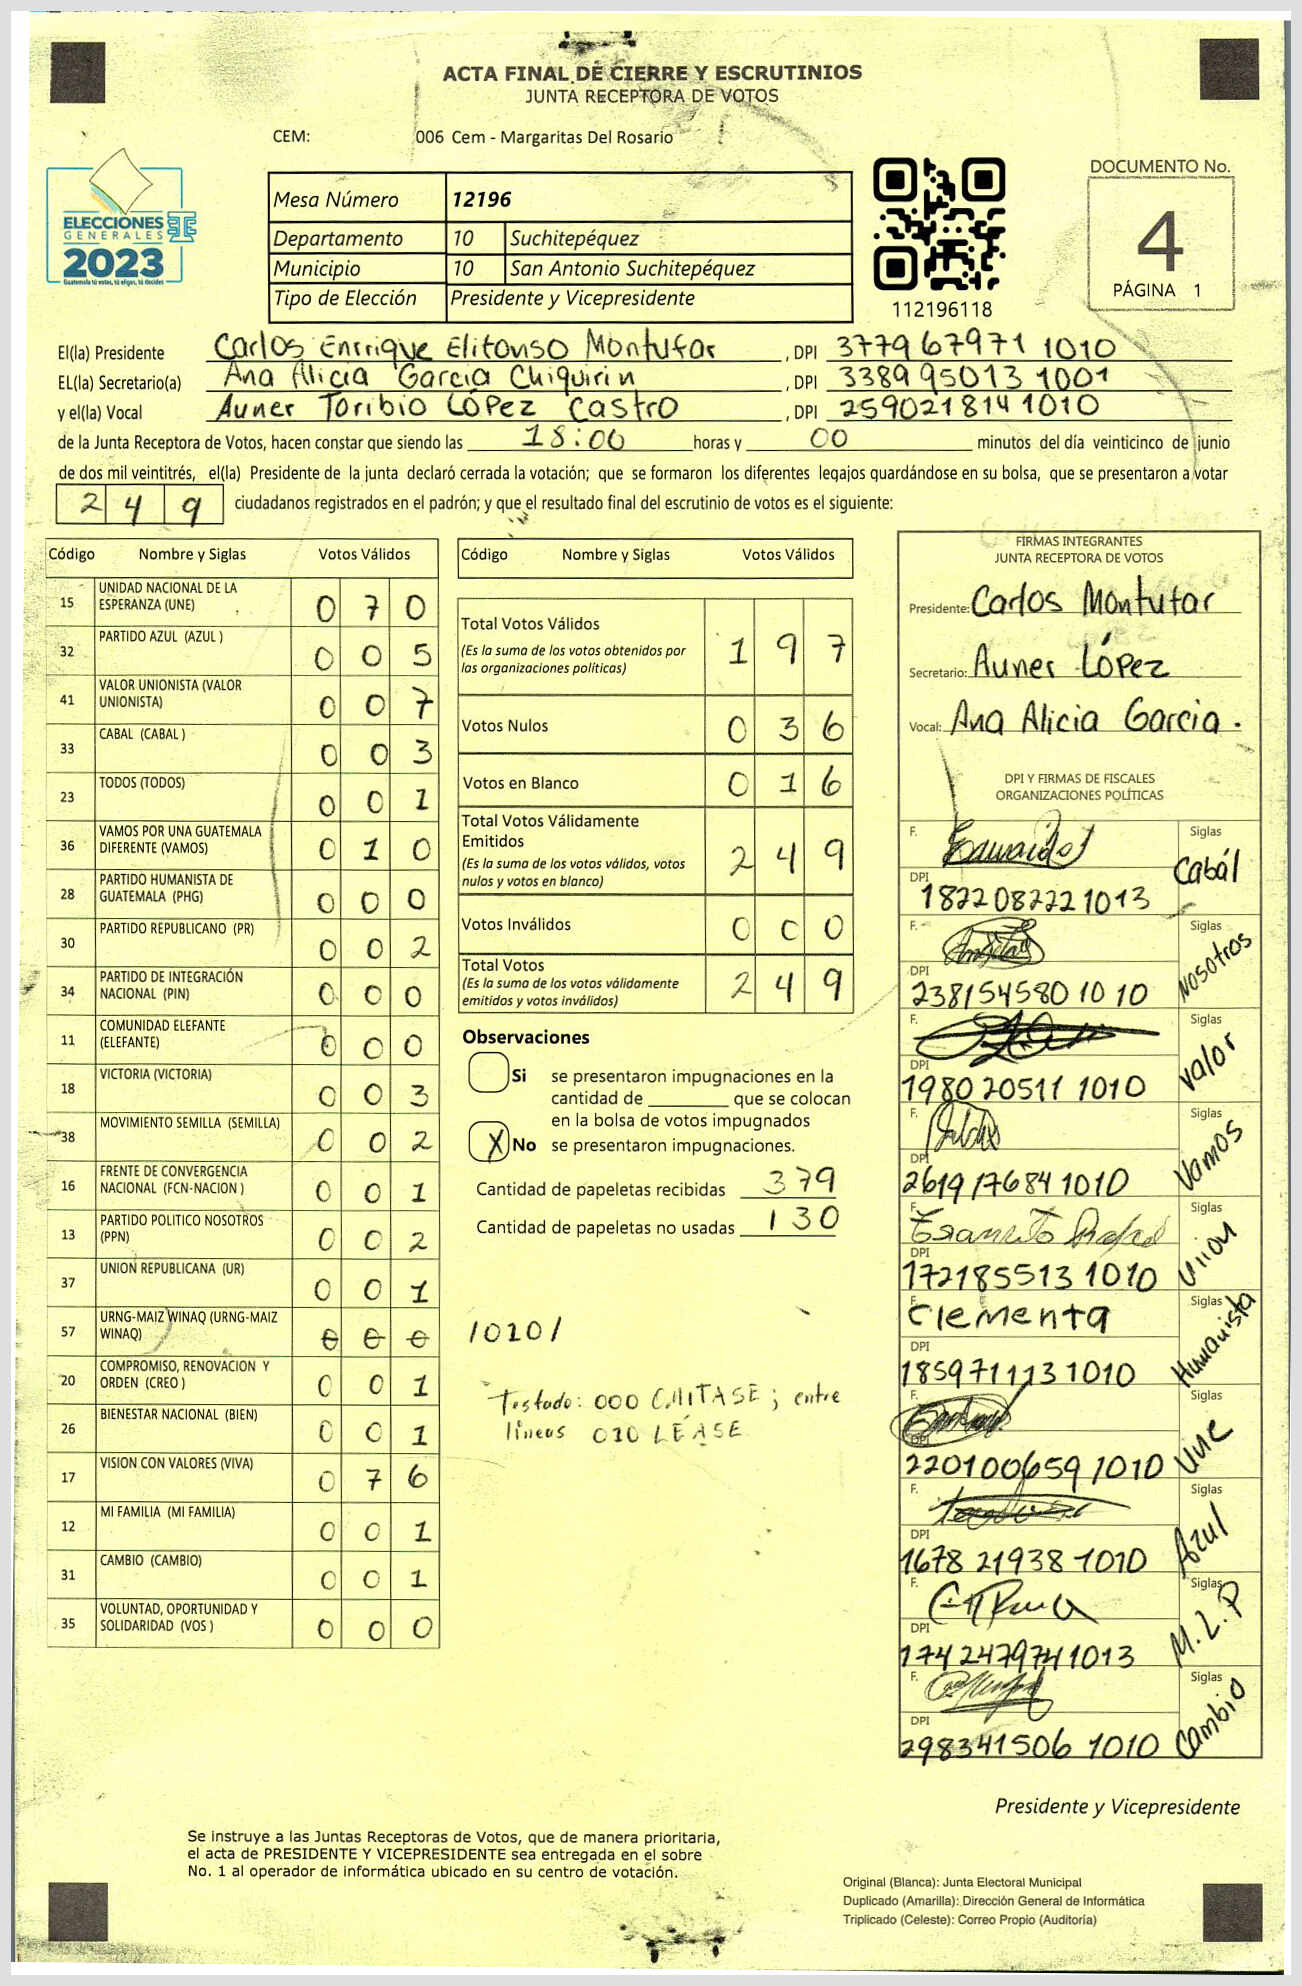 ACTA FINAL DE CIERRE Y ESCRUTINIOS
JUNTA RECEPTORA DE VOTOS
CEM: 006 Cem - Margaritas Del Rosario
ELECCIONES
GENERALES
2023
Guatemala tú votas, tú eliges, tú decides
Mesa Número 12196
Departamento 10 Suchitepéquez
Municipio 10 San Antonio Suchitepéquez
Tipo de Elección Presidente y Vicepresidente
112196118
DOCUMENTO No.
4
PÁGINA 1
El(la) Presidente Carlos Enrrique Elifonso Montufar , DPI 377967971 1010
EL(la) Secretario(a) Ana Alicia Garcia Chiquirin , DPI 338995013 1001
y el(la) Vocal Auner Toribio López Castro , DPI 259021814 1010
de la Junta Receptora de Votos, hacen constar que siendo las 18:00 horas y 00 minutos del día veinticinco de junio
de dos mil veintitrés, el(la) Presidente de la junta declaró cerrada la votación; que se formaron los diferentes legajos quardándose en su bolsa, que se presentaron a votar
249 ciudadanos registrados en el padrón; y que el resultado final del escrutinio de votos es el siguiente:
Código Nombre y Siglas Votos Válidos
15 UNIDAD NACIONAL DE LA ESPERANZA (UNE) 0 7 0
32 PARTIDO AZUL (AZUL ) 0 0 5
41 VALOR UNIONISTA (VALOR UNIONISTA) 0 0 7
33 CABAL (CABAL ) 0 0 3
23 TODOS (TODOS) 0 0 1
36 VAMOS POR UNA GUATEMALA DIFERENTE (VAMOS) 0 1 0
28 PARTIDO HUMANISTA DE GUATEMALA (PHG) 0 0 0
30 PARTIDO REPUBLICANO (PR) 0 0 2
34 PARTIDO DE INTEGRACIÓN NACIONAL (PIN) 0 0 0
11 COMUNIDAD ELEFANTE (ELEFANTE) 0 0 0
18 VICTORIA (VICTORIA) 0 0 3
38 MOVIMIENTO SEMILLA (SEMILLA) 0 0 2
16 FRENTE DE CONVERGENCIA NACIONAL (FCN-NACION ) 0 0 1
13 PARTIDO POLITICO NOSOTROS (PPN) 0 0 2
37 UNION REPUBLICANA (UR) 0 0 1
57 URNG-MAIZ WINAQ (URNG-MAIZ WINAQ) 0 0 0 /010/
20 COMPROMISO, RENOVACION Y ORDEN (CREO ) 0 0 1
26 BIENESTAR NACIONAL (BIEN) 0 0 1
17 VISION CON VALORES (VIVA) 0 7 6
12 MI FAMILIA (MI FAMILIA) 0 0 1
31 CAMBIO (CAMBIO) 0 0 1
35 VOLUNTAD, OPORTUNIDAD Y SOLIDARIDAD (VOS ) 0 0 0
Código Nombre y Siglas Votos Válidos
Total Votos Válidos 1 9 7
(Es la suma de los votos obtenidos por
las organizaciones políticas)
Votos Nulos 0 3 6
Votos en Blanco 0 1 6
Total Votos Válidamente
Emitidos 2 4 9
(Es la suma de los votos válidos, votos
nulos y votos en blanco)
Votos Inválidos 0 0 0
Total Votos 2 4 9
(Es la suma de los votos válidamente
emitidos y votos inválidos)
Observaciones
Si se presentaron impugnaciones en la
cantidad de ________ que se colocan
en la bolsa de votos impugnados
X No se presentaron impugnaciones.
Cantidad de papeletas recibidas 379
Cantidad de papeletas no usadas 130
Testado: 000 OMITASE; entre
lineas 010 LÉASE
FIRMAS INTEGRANTES
JUNTA RECEPTORA DE VOTOS
Presidente: Carlos Montufar
Secretario: Auner López
Vocal: Ana Alicia Garcia.
DPI Y FIRMAS DE FISCALES
ORGANIZACIONES POLÍTICAS
F. Siglas Cabál
DPI 1822082221013
F. Siglas Nosotros
DPI 238154580 10 10
F. Siglas Valor
DPI 1980 20511 1010
F. Siglas Vamos
DPI 2619176841010
F. Siglas Union
DPI 172185513 1010
F. Clementa Siglas Humanista
DPI 1859711131010
F. Siglas Une
DPI 220100659 1010
F. Siglas Azul
DPI 1678 21938 1010
F. Siglas M.L.P
DPI 1742479741013
F. Siglas Cambio
DPI 298341506 1010
Presidente y Vicepresidente
Se instruye a las Juntas Receptoras de Votos, que de manera prioritaria,
el acta de PRESIDENTE Y VICEPRESIDENTE sea entregada en el sobre
No. 1 al operador de informática ubicado en su centro de votación.
Original (Blanca): Junta Electoral Municipal
Duplicado (Amarilla): Dirección General de Informática
Triplicado (Celeste): Correo Propio (Auditoría)